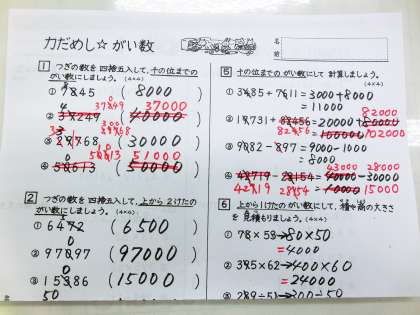 力だめし☆がい数
名前
1 つぎの数を四捨五入して、十の位までの
がい数にしましょう。(4×4)
① 7845 (8000)
37000
② (40000)
③ (30000)
51000
④ 50613 (50000)
2 つぎの数を四捨五入して、上から2けたの
がい数にしましょう。(4×6)
① 6472 (6500)
② (97000)
③ (15000)
5 十の位までのがい数にして計算しましょう。
(4×4)
① 3485+7611=3000+8000
=11000
82000
② 19731+82456=20000+80000
82456 =100000 102000
③ 9082-897=9000-1000
=8000
43000 28000
④ 42719-28154=40000-30000
42719 28154 =10000 15000
6 上から1けたのがい数にして、積や商の大きさ
を見積もりましょう。(4×4)
① 78×53→80×50
=4000
② 395×62→400×60
=24000
③ 289÷51→300÷50